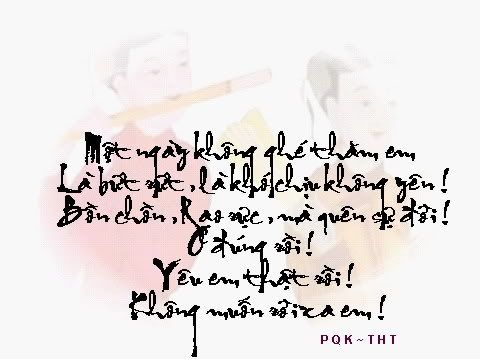 Một ngày không ghé thăm em
Là bứt rứt, là khó chịu không yên!
Bồn chồn, Rạo rực, mà quên sự đời!
Ờ đúng rồi!
Yêu em thật rồi!
Không muốn rời xa em!
PQK~THT